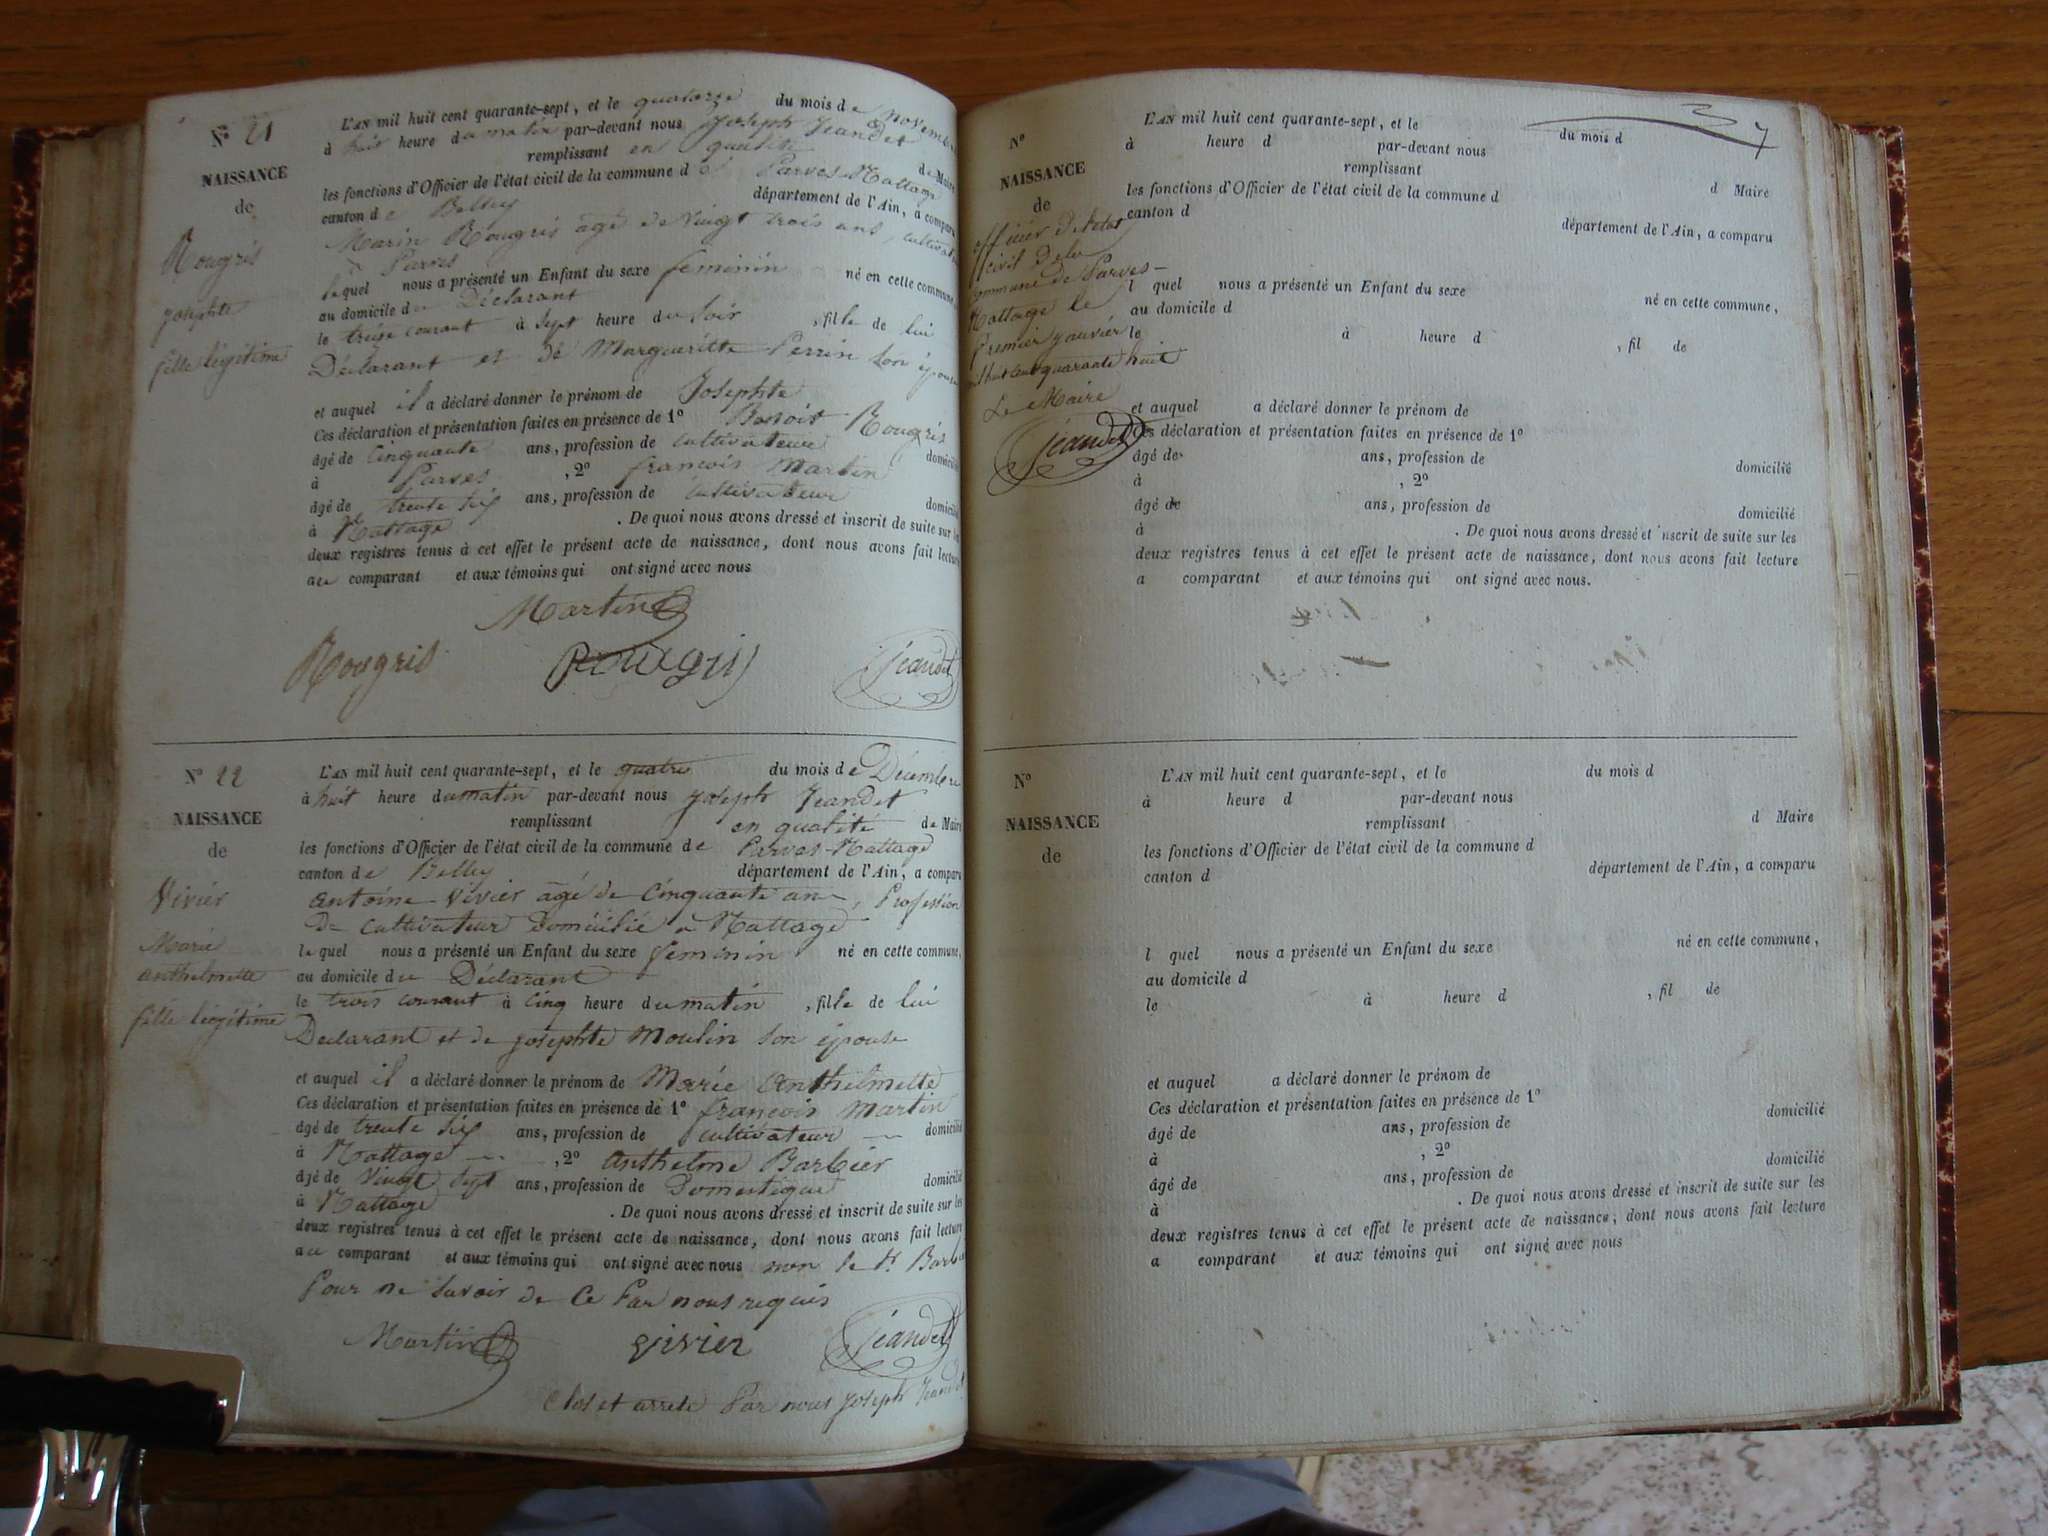 N° 21
NAISSANCE
de
Rougris
Josephte
fille légitime
L'AN mil huit cent quarante-sept, et le quatorze du mois de novembre
à huit heure du matin par-devant nous Joseph Jeandet
remplissant en qualité de Maire
les fonctions d'Officier de l'état civil de la commune de Parves-Nattage
canton de Belley département de l'Ain, a comparu
Marin Rougris âgé de vingt trois ans, cultivateur
à Parves
lequel nous a présenté un Enfant du sexe feminin né en cette commune,
au domicile du Déclarant
le treize courant à sept heure du soir, fille de lui
Déclarant et de Margueritte Perrin son épouse
et auquel il a déclaré donner le prénom de Josephte
Ces déclaration et présentation faites en présence de 1° Benoit Rougris
âgé de Cinquante ans, profession de cultivateur domicilié
à Parves, 2° francois Martin
âgé de trente six ans, profession de cultivateur domicilié
à Nattage. De quoi nous avons dressé et inscrit de suite sur les
deux registres tenus à cet effet le présent acte de naissance, dont nous avons fait lecture
au comparant et aux témoins qui ont signé avec nous
Martin
Rougris Rougris Jeandet
N° 22
NAISSANCE
de
Vivier
Marie
anthelmette
fille légitime
L'AN mil huit cent quarante-sept, et le quatre du mois de Décembre
à huit heure du matin par-devant nous Joseph Jeandet
remplissant en qualité de Maire
les fonctions d'Officier de l'état civil de la commune de Parves-Nattage
canton de Belley département de l'Ain, a comparu
antoine Vivier âgé de Cinquante an, Profession
De Cultivateur Domicilié a Nattage
lequel nous a présenté un Enfant du sexe feminin né en cette commune,
au domicile du Déclarant
le trois courant à cinq heure du matin, fille de lui
Declarant et de josephte Moulin son épouse
et auquel il a déclaré donner le prénom de Marie Anthelmette
Ces déclaration et présentation faites en présence de 1° francois Martin
âgé de trente six ans, profession de cultivateur domicilié
à Nattage, 2° Anthelme Barbier
âgé de Vingt sept ans, profession de Domestique domicilié
à Nattage. De quoi nous avons dressé et inscrit de suite sur les
deux registres tenus à cet effet le présent acte de naissance, dont nous avons fait lecture
au comparant et aux témoins qui ont signé avec nous non le dt Barbier
Pour ne savoir de Ce Par nous requis
Martin vivier Jeandet
Clos et arreté Par nous Joseph Jeandet
37
N°
NAISSANCE
de
officier de l'etat
civil de la
commune de Parves-
Nattage le
Premier janvier
mil huit cent quarante huit
Le Maire
Jeandet
L'AN mil huit cent quarante-sept, et le du mois d
à heure d par-devant nous
remplissant d Maire
les fonctions d'Officier de l'état civil de la commune d
canton d département de l'Ain, a comparu
l quel nous a présenté un Enfant du sexe né en cette commune,
au domicile d
le à heure d , fil de
et auquel a déclaré donner le prénom de
Ces déclaration et présentation faites en présence de 1°
âgé de ans, profession de domicilié
à , 2°
âgé de ans, profession de domicilié
à . De quoi nous avons dressé et inscrit de suite sur les
deux registres tenus à cet effet le présent acte de naissance, dont nous avons fait lecture
a comparant et aux témoins qui ont signé avec nous.
N°
NAISSANCE
de
L'AN mil huit cent quarante-sept, et le du mois d
à heure d par-devant nous
remplissant d Maire
les fonctions d'Officier de l'état civil de la commune d
canton d département de l'Ain, a comparu
l quel nous a présenté un Enfant du sexe né en cette commune,
au domicile d
le à heure d , fil de
et auquel a déclaré donner le prénom de
Ces déclaration et présentation faites en présence de 1°
âgé de ans, profession de domicilié
à , 2°
âgé de ans, profession de domicilié
à . De quoi nous avons dressé et inscrit de suite sur les
deux registres tenus à cet effet le présent acte de naissance, dont nous avons fait lecture
a comparant et aux témoins qui ont signé avec nous